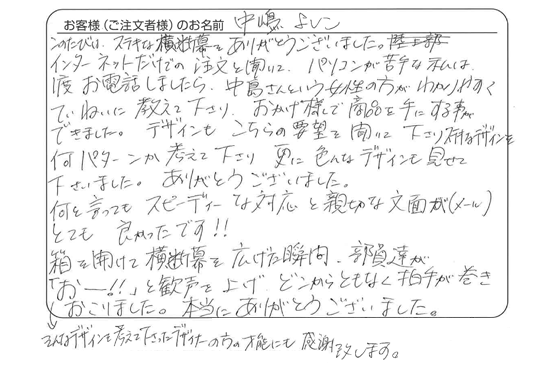 お客様（ご注文者様）のお名前 中嶋 よしこ
このたびは、ステキな横断幕をありがとうございました。陸上部
インターネットだけでの注文と聞いて、パソコンが苦手な私は、
度 お電話しましたら、中島さんという女性の方が わかりやすく
ていねいに 教えて下さり、おかげ様で商品を手にする事が
できました。 デザインも こちらの要望を聞いて 下さり ステキなデザインを
何パターンか 考えて下さり 更に 色んなデザインも見せて
下さいました。 ありがとうございました。
何と言っても スピーディーな対応 と 親切な文面が(メール)
とても 良かったです!!
箱を開けて 横断幕を 広げた瞬間、部員達が
「おー!!」と歓声を上げ、どこからともなく拍手が巻き
おこりました。本当にありがとうございました。
そんなデザインを考えて下さったデザイナーの方の才能にも 感謝致します。